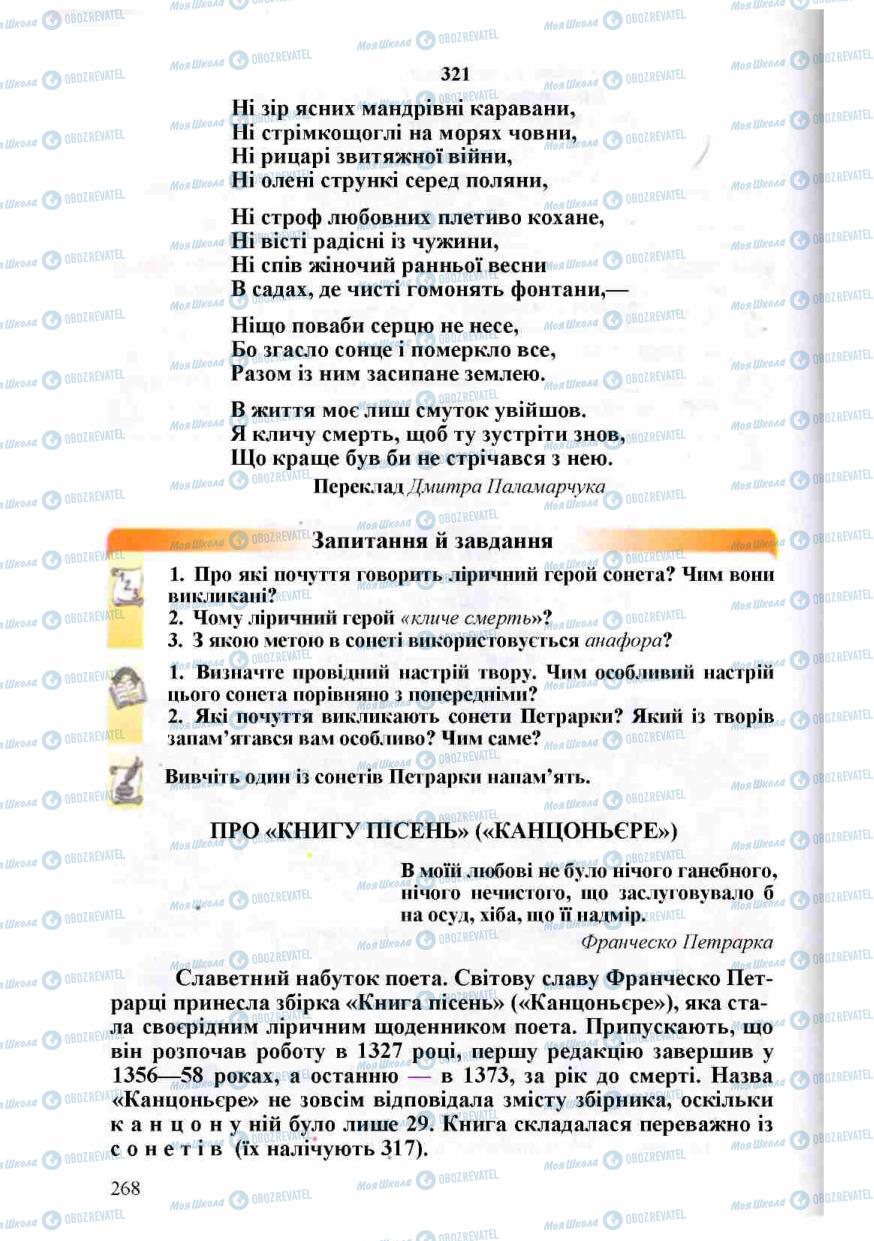 321
Ні зір ясних мандрівні каравани,
Ні стрімкощоглі на морях човни,
Ні рицарі звитяжної війни,
Ні олені стрункі серед поляни,
Ні строф любовних плетиво кохане,
Ні вісті радісні із чужини,
Ні спів жіночий ранньої весни
В садах, де чисті гомонять фонтани,—
Ніщо поваби серцю не несе,
Бо згасло сонце і померкло все,
Разом із ним засипане землею.
В життя моє лиш смуток увійшов.
Я кличу смерть, щоб ту зустріти знов,
Що краще був би не стрічався з нею.
Переклад Дмитра Паламарчука
Запитання й завдання
1. Про які почуття говорить ліричний герой сонета? Чим вони
викликані?
2. Чому ліричний герой «кличе смерть»?
3. З якою метою в сонеті використовується анафора?
1. Визначте провідний настрій твору. Чим особливий настрій
цього сонета порівняно з попередніми?
2. Які почуття викликають сонети Петрарки? Який із творів
запам’ятався вам особливо? Чим саме?
Вивчіть один із сонетів Петрарки напам’ять.
ПРО «КНИГУ ПІСЕНЬ» («КАНЦОНЬЄРЕ»)
В моїй любові не було нічого ганебного,
нічого нечистого, що заслуговувало б
на осуд, хіба, що її надмір.
Франческо Петрарка
Славетний набуток поета. Світову славу Франческо Пет-
рарці принесла збірка «Книга пісень» («Канцоньєре»), яка ста-
ла своєрідним ліричним щоденником поета. Припускають, що
він розпочав роботу в 1327 році, першу редакцію завершив у
1356—58 роках, а останню — в 1373, за рік до смерті. Назва
«Канцоньєре» не зовсім відповідала змісту збірника, оскільки
к а н ц о н у ній було лише 29. Книга складалася переважно із
с о н е т і в (їх налічують 317).
268